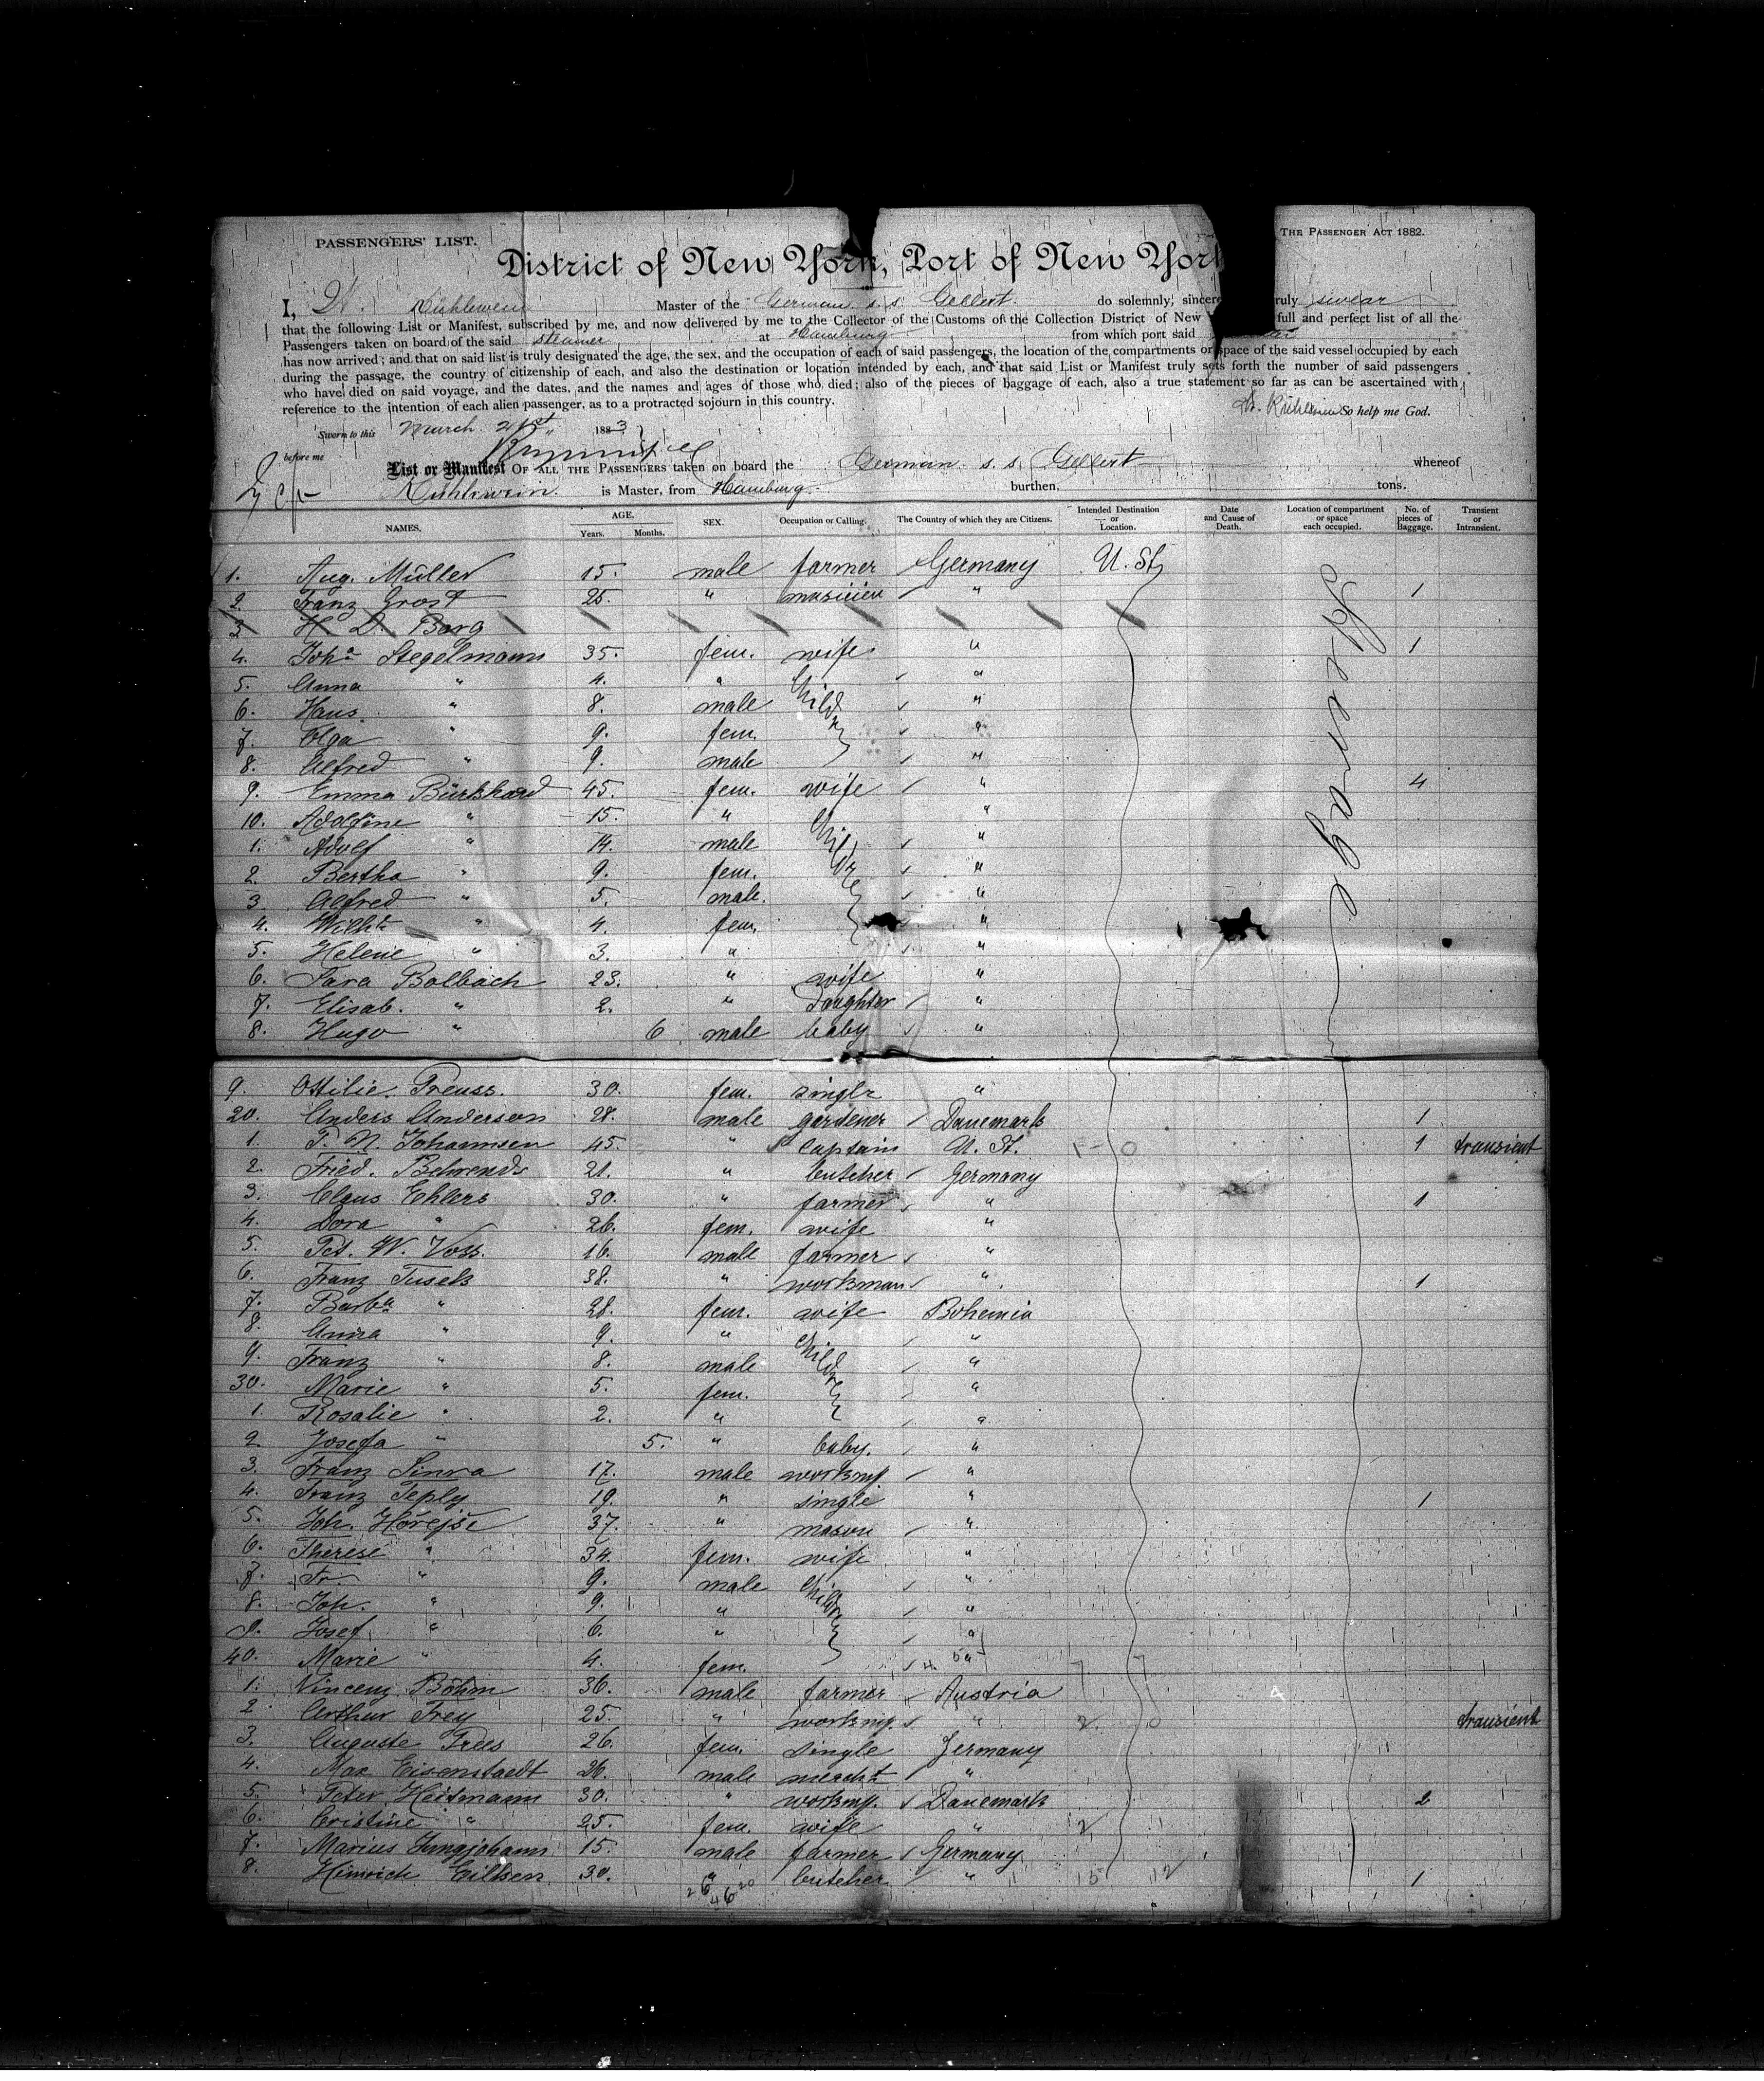 PASSENGERS' LIST.
THE PASSENGER ACT 1882.
District of New York, Port of New York
I, Kühlewein Master of the German s. s. Gellert do solemnly, sincere ruly swear
that the following List or Manifest, subscribed by me, and now delivered by me to the Collector of the Customs of the Collection District of New full and perfect list of all the
Passengers taken on board of the said steamer at Hamburg from which port said
has now arrived; and that on said list is truly designated the age, the sex, and the occupation of each of said passengers, the location of the compartments or space of the said vessel occupied by each
during the passage, the country of citizenship of each, and also the destination or location intended by each, and that said List or Manifest truly sets forth the number of said passengers
who have died on said voyage, and the dates, and the names and ages of those who died; also of the pieces of baggage of each, also a true statement so far as can be ascertained with
reference to the intention of each alien passenger, as to a protracted sojourn in this country.
Kühlewein So help me God.
Sworn to this March 21st 1883
before me
List or Manifest OF ALL THE PASSENGERS taken on board the German s. s. Gellert whereof
Kühlewein is Master, from Hamburg burthen, tons.
NAMES. AGE. Years. Months. SEX. Occupation or Calling. The Country of which they are Citizens. Intended Destination or Location. Date and Cause of Death. Location of compartment or space each occupied. No. of pieces of Baggage. Transient or Intransient.
1. Aug. Müller 15. male farmer Germany U. St.
2. Franz Grost 25. " musicien " 1
3 H. D. Borg
4. Joha Stegelmann 35. fem. wife " 1
5. Anna " 4. " Childr "
6. Hans " 8. male "
7. Olga " 9. fem. "
8. Alfred " 9. male "
Steerage
9. Emma Bürkhard 45. fem. wife " 4
10. Adolfine " 15. " "
1. Adolf " 14. male Childre "
2. Bertha " 9. fem. "
3 Alfred " 5. male. "
4. Wilh. " 4. fem. "
5. Helene " 3. " "
6. Sara Bolbach 23. " wife "
7. Elisab. " 2. " Daughter "
8. Hugo " 6 male baby "
9. Ottilie Preuss. 30. fem. single "
20. Anders Anderson 28. male gardener Danemark 1
1. P. N. Johannsen 45. " captain U. St. 1 transient
2. Fried. Behrends 21. " butcher Germany
3. Claus Ehlers 30. " farmer " 1
4. Dora " 26. fem. wife "
5. Pet. W. Voss. 16. male farmer "
6. Franz Tusek 38. " workman " 1
7. Barba " 28. fem. wife Bohemia
8. Anna " 9. " Childre "
9. Franz " 8. male "
30. Marie " 5. fem. "
1. Rosalie " 2. " "
2. Josefa " 5. " baby. "
3. Franz Sinva 17. male workmg "
4. Franz Teply 19. " single " 1
5. Joh. Hořejše 37. " mason "
6. Therese " 34. fem. wife "
7. Fr. " 9. male Childre "
8. Joh. " 9. " "
9. Josef " 6. " "
40. Marie " 4. fem. "
1. Vincenz Böhm 36. male farmer Austria
2. Arthur Frey 25. " workmg. " transient
3. Auguste Frees 26. fem. single Germany
4. Max Eisenstaedt 26. male mercht "
5. Peter Heitmann 30. " workmg. Danemark 2
6. Cristine " 25. fem. wife "
7. Marius Jungjohann 15. male farmer Germany
8. Hinrich Eilksen 30. " butcher " 1